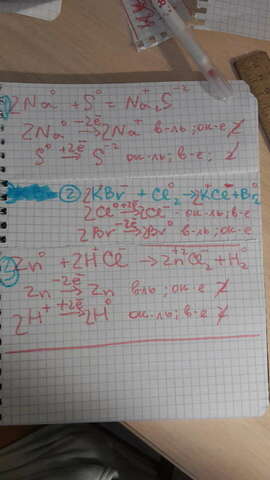 1) 2Na⁰ + S⁰ = Na₂⁺S⁻²
2Na⁰ −2e̅→ 2Na⁺ в-ль; ок-е
S⁰ +2e̅→ S⁻² ок-ль; в-е;
② 2KBr⁻ + Cl₂⁰ → KCl⁻ + Br₂⁰
2Cl⁰ +2e̅→ 2Cl⁻ - ок-ль; в-е
2Br⁻ −2e̅→ Br⁰ - в-ль; ок-е
3) Zn⁰ + 2H⁺Cl⁻ → Zn⁺²Cl₂⁻ + H₂⁰
Zn −2e̅→ Zn в-ль; ок-е
2H⁺ +2e̅→ 2H⁰ ок-ль; в-е